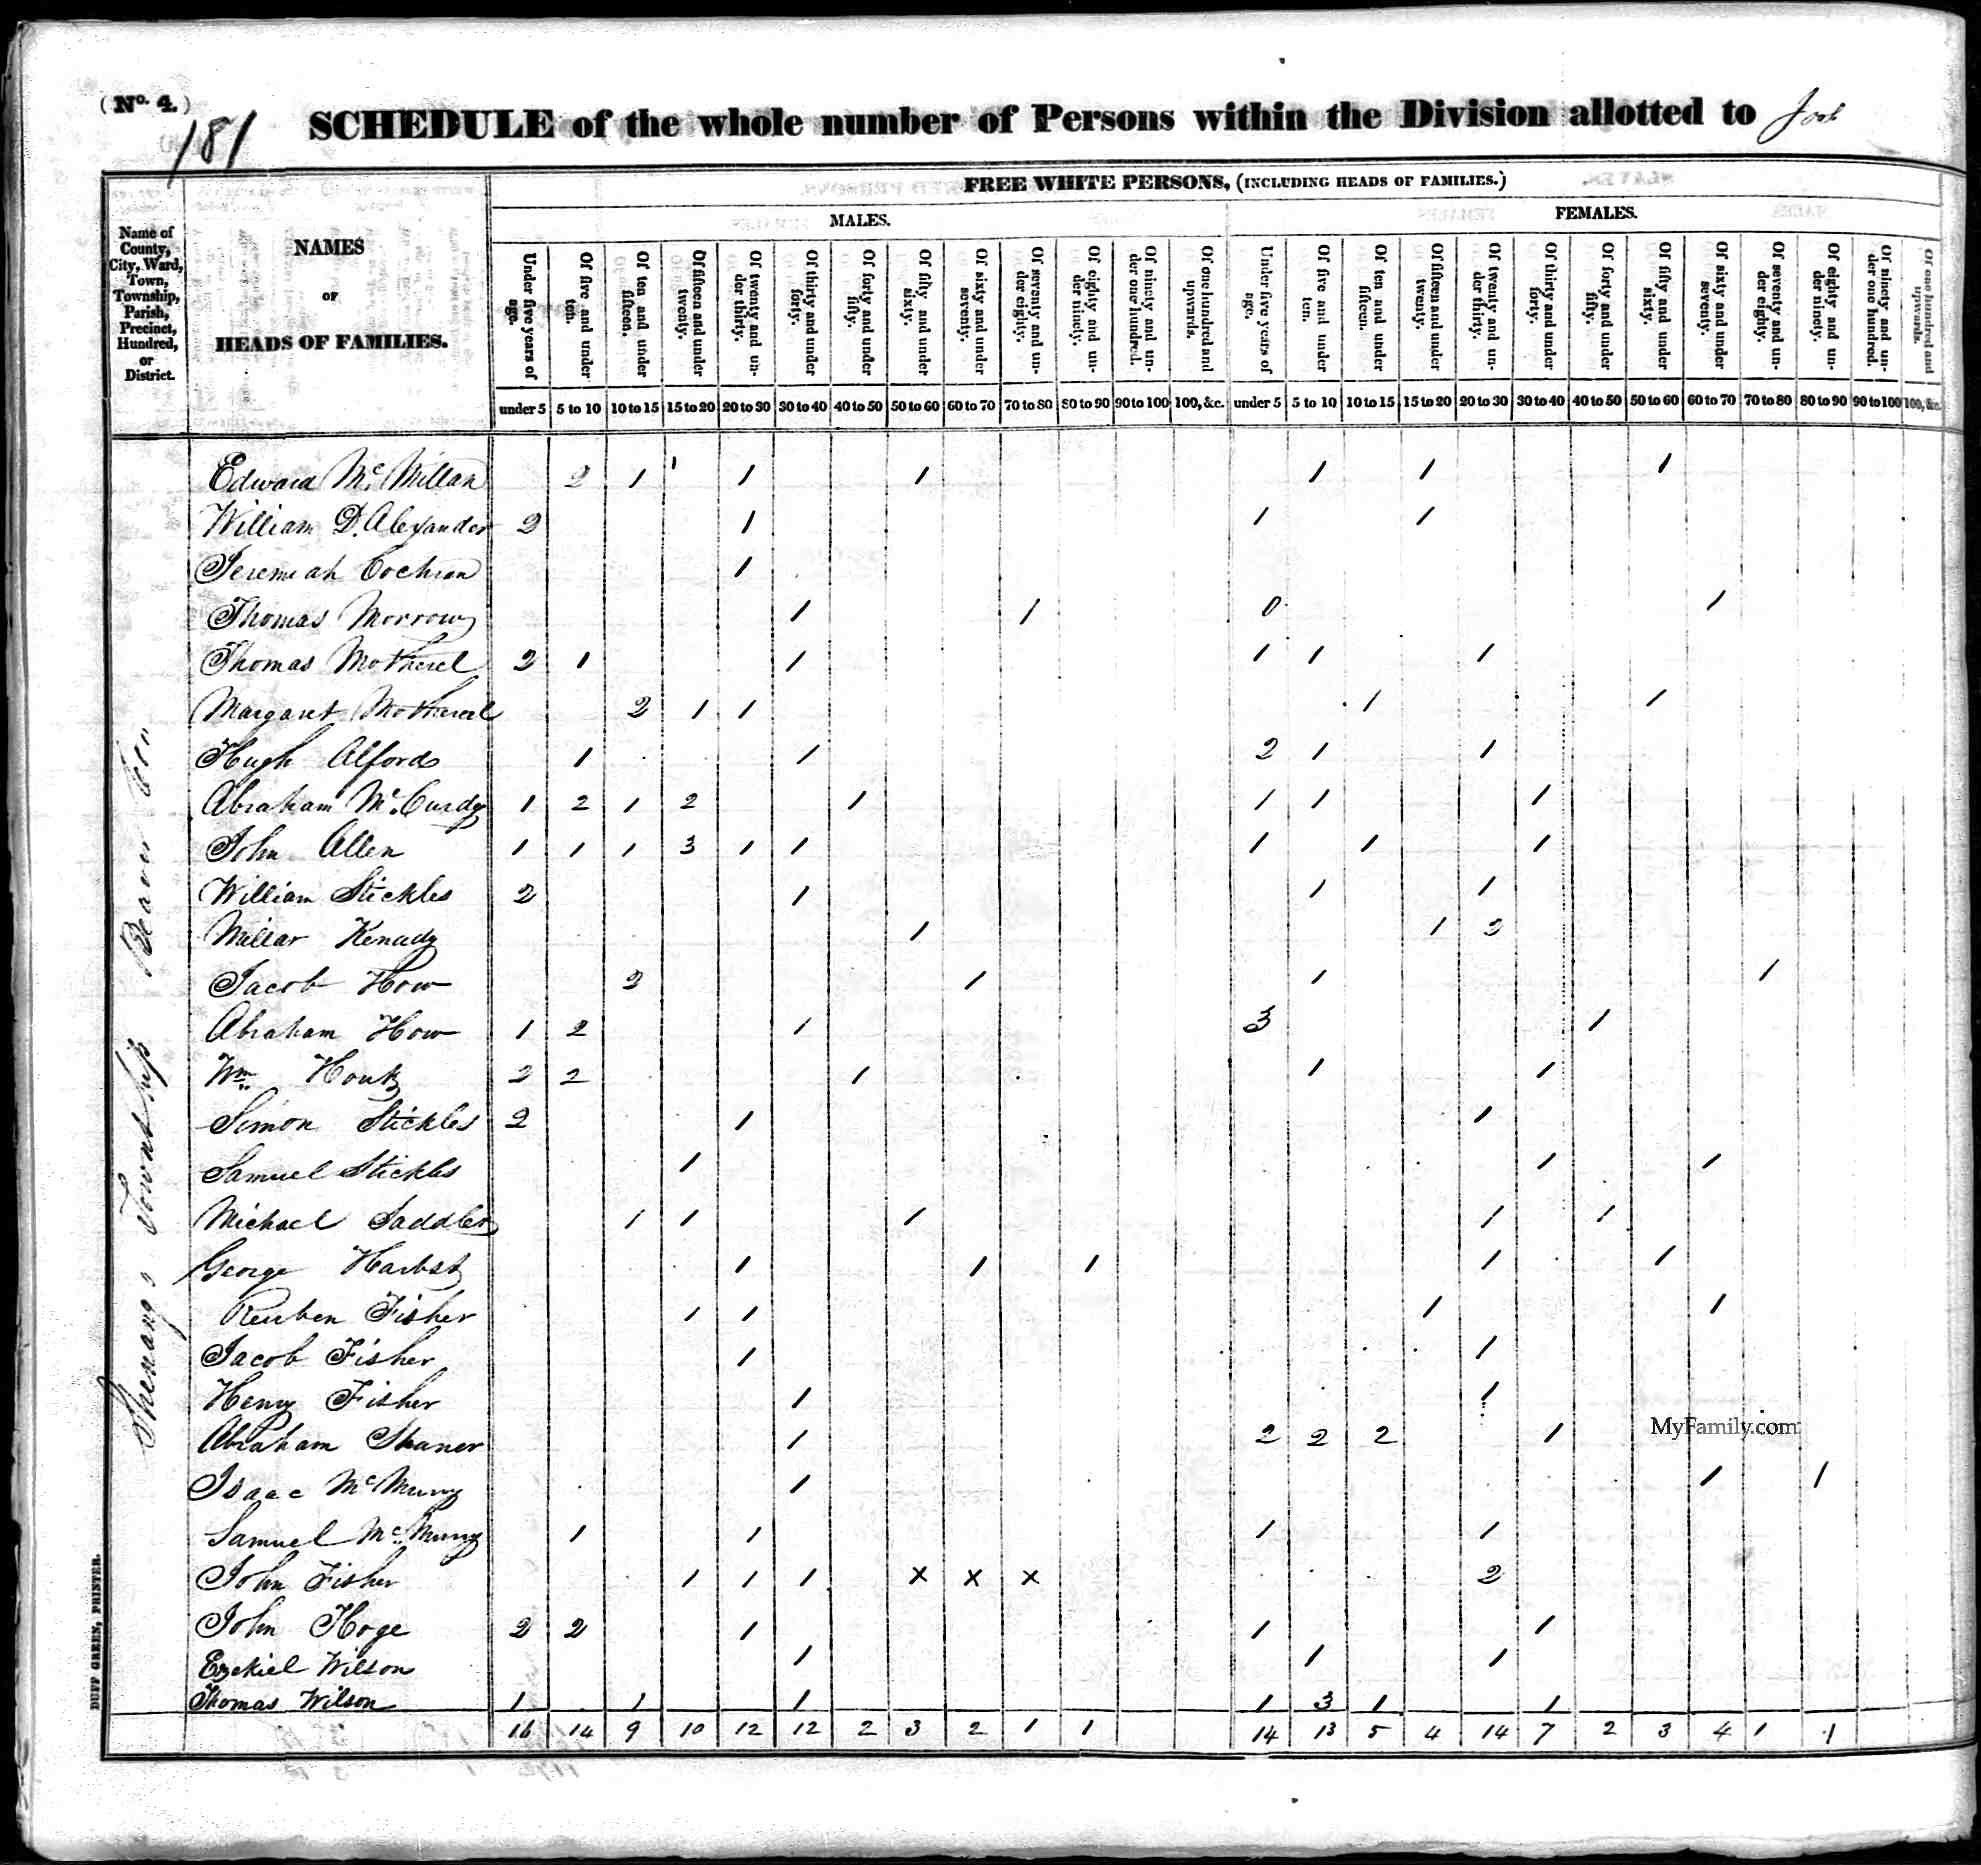 (No. 4.)
181
SCHEDULE of the whole number of Persons within the Division allotted to
FREE WHITE PERSONS, (INCLUDING HEADS OF FAMILIES.)
MALES. FEMALES.
Name of County, City, Ward, Town, Township, Parish, Precinct, Hundred, or District.
NAMES
OF
HEADS OF FAMILIES.
Under five years of age. Of five and under ten. Of ten and under fifteen. Of fifteen and under twenty. Of twenty and under thirty. Of thirty and under forty. Of forty and under fifty. Of fifty and under sixty. Of sixty and under seventy. Of seventy and under eighty. Of eighty and under ninety. Of ninety and under one hundred. Of one hundred and upwards. Under five years of age. Of five and under ten. Of ten and under fifteen. Of fifteen and under twenty. Of twenty and under thirty. Of thirty and under forty. Of forty and under fifty. Of fifty and under sixty. Of sixty and under seventy. Of seventy and under eighty. Of eighty and under ninety. Of ninety and under one hundred. Of one hundred and upwards.
under 5 5 to 10 10 to 15 15 to 20 20 to 30 30 to 40 40 to 50 50 to 60 60 to 70 70 to 80 80 to 90 90 to 100 100, &c. under 5 5 to 10 10 to 15 15 to 20 20 to 30 30 to 40 40 to 50 50 to 60 60 to 70 70 to 80 80 to 90 90 to 100 100, &c.
Shenango Township Beaver
Edward McMillan 2 1 1 1 1 1 1 1
William D. Alexander 2 1 1 1
Jeremiah Cochran 1
Thomas Morrow 1 1 0 1
Thomas Motherel 2 1 1 1 1 1
Margaret Motherel 2 1 1 1 1
Hugh Alford 1 1 2 1 1
Abraham McCurdy 1 2 1 2 1 1 1 1
John Allen 1 1 1 3 1 1 1 1 1
William Stickles 2 1 1 1
Millar Kenady 1 1 2
Jacob How 2 1 1 1
Abraham How 1 2 1 3 1
Wm Houk 2 2 1 1 1
Simon Stickles 2 1 1
Samuel Stickles 1 1 1
Michael Saddler 1 1 1 1 1
George Harbst 1 1 1 1 1
Reuben Fisher 1 1 1 1
Jacob Fisher 1 1
Henry Fisher 1 1
Abraham Shaner 1 2 2 2 1
MyFamily.com
Isaac McMurry 1 1 1
Samuel McMurry 1 1 1 1
John Fisher 1 1 1 x x x 2
John Hoge 2 2 1 1 1
Ezekiel Wilson 1 1 1
Thomas Wilson 1 1 1 1 3 1 1
16 14 9 10 12 12 2 3 2 1 1 14 13 5 4 14 7 2 3 4 1 1
DUFF GREEN, PRINTER.